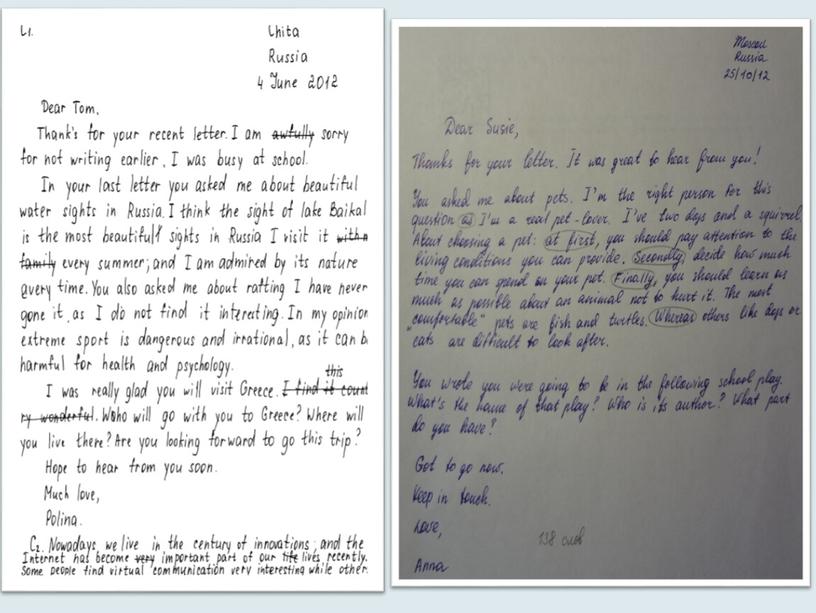 C1.
Chita
Russia
4 June 2012
Dear Tom,
Thank's for your recent letter. I am awfully sorry
for not writing earlier, I was busy at school.
In your last letter you asked me about beautiful
water sights in Russia. I think the sight of lake Baikal
is the most beautiful sights in Russia I visit it with
family every summer; and I am admired by its nature
every time. You also asked me about rafting I have never
gone it, as I do not find it interesting. In my opinion
extreme sport is dangerous and irrational, as it can b
harmful for health and psychology.
this
I was really glad you will visit Greece. I find it count
ry wonderful. Who will go with you to Greece? Where will
you live there? Are you looking forward to go this trip?
Hope to hear from you soon.
Much love,
Polina.
C2. Nowadays, we live in the century of innovations; and the
Internet has become very important part of our life lives recently.
Some people find virtual communication very interesting while other
Moscow
Russia
25/10/12
Dear Susie,
Thanks for your letter. It was great to hear from you!
You asked me about pets. I'm the right person for this
question as I'm a real pet-lover. I've two dogs and a squirrel.
About choosing a pet: at first, you should pay attention to the
living conditions you can provide. Secondly, decide how much
time you can spend on your pet. Finally, you should learn as
much as possible about an animal not to hurt it. The most
„comfortable" pets are fish and turtles. Whereas others like dogs or
cats are difficult to look after.
You wrote you were going to be in the following school play.
What's the name of that play? Who is its author? What part
do you have?
Got to go now.
Keep in touch.
Love,
138 слов
Anna